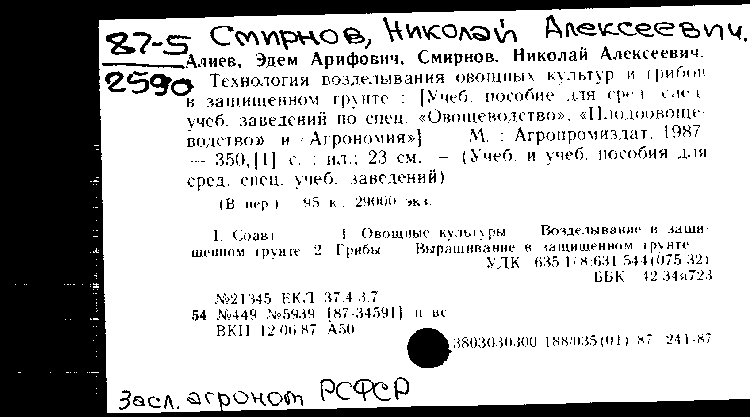 87-5 Смирнов, Николай Алексеевич.
2590
Алиев, Эдем Арифович, Смирнов, Николай Алексеевич.
Технология возделывания овощных культур и грибов
в защищенном грунте : [Учеб. пособие для сред. спец.
учеб. заведений по спец. «Овощеводство», «Плодоовоще-
водство» и «Агрономия»] М. : Агропромиздат, 1987
— 350,[1] с. : ил.; 23 см. — (Учеб. и учеб. пособия для
сред. спец. учеб. заведений)
(В пер.) 95 к. 29000 экз.
1. Соавт 1. Овощные культуры Возделывание в защи-
щенном грунте 2 Грибы Выращивание в защищенном грунте
УДК 635.1/8:631.544(075.32)
ББК 42.34я723
№21345 ЕКЛ 37.4.3.7
54 №449 №5939 [87-34591] п вс
ВКП 12.06.87 А50
3803030300 188/035(01) 87 241-87
Засл. агроном РСФСР